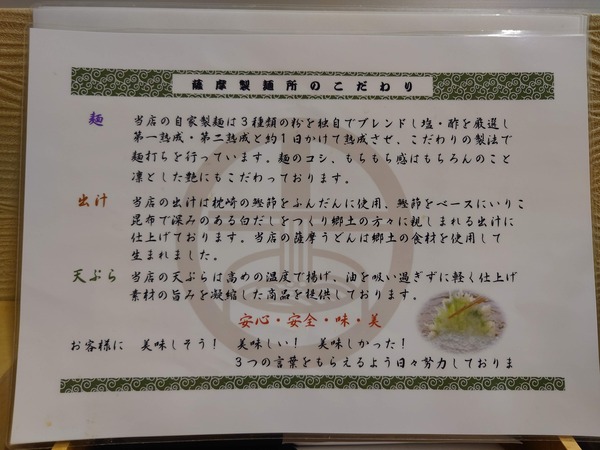 薩摩製麺所のこだわり
麺 当店の自家製麺は3種類の粉を独自でブレンドし塩・酢を厳選し
第一熟成・第二熟成と約1日かけて熟成させ、こだわりの製法で
麺打ちを行っています。麺のコシ、もちもち感はもちろんのこと
凛とした艶にもこだわっております。
出汁 当店の出汁は枕崎の鰹節をふんだんに使用、鰹節をベースにいりこ
昆布で深みのある白だしをつくり郷土の方々に親しまれる出汁に
仕上げております。当店の薩摩うどんは郷土の食材を使用して
生まれました。
天ぷら 当店の天ぷらは高めの温度で揚げ、油を吸い過ぎずに軽く仕上げ
素材の旨みを凝縮した商品を提供しております。
安心・安全・味・美
お客様に 美味しそう! 美味しい! 美味しかった!
3つの言葉をもらえるよう日々努力しておりま